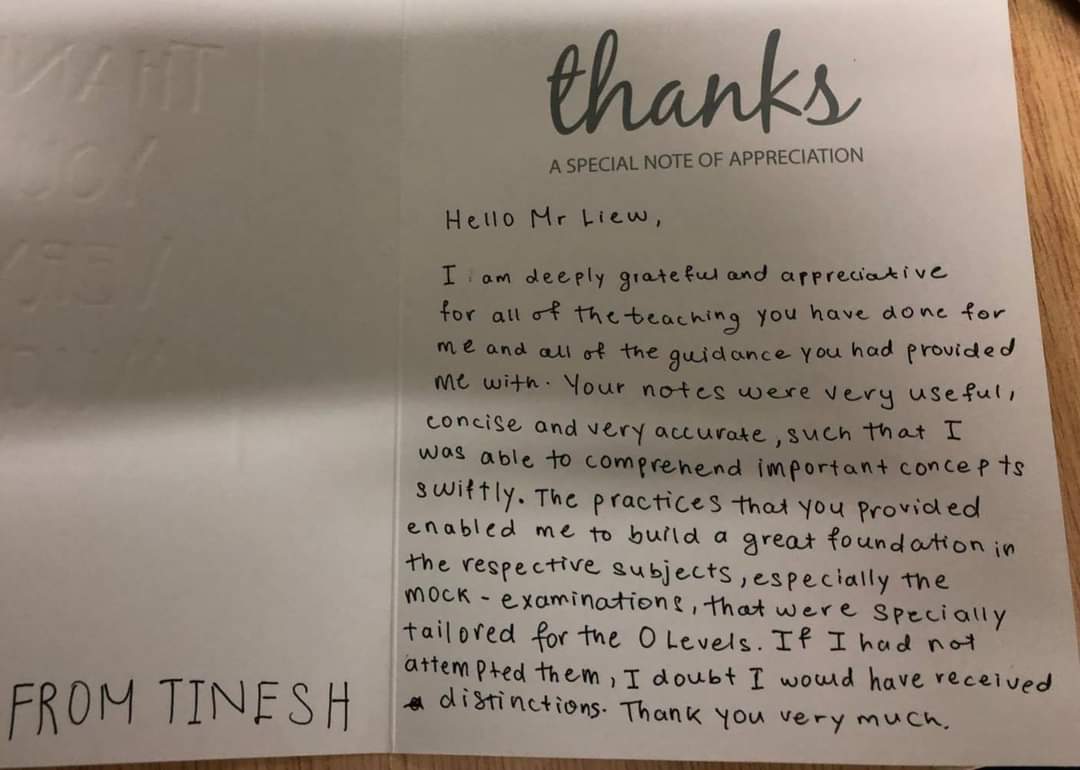 THAN
YOU
VERY
thanks
A SPECIAL NOTE OF APPRECIATION
Hello Mr Liew,
I am deeply grateful and appreciative
for all of the teaching you have done for
me and all of the guidance you had provided
me with. Your notes were very useful,
concise and very accurate, such that I
was able to comprehend important concepts
swiftly. The practices that you provided
enabled me to build a great foundation in
the respective subjects, especially the
mock - examinations, that were specially
tailored for the O Levels. If I had not
attempted them, I doubt I would have received
distinctions. Thank you very much.
FROM TINESH